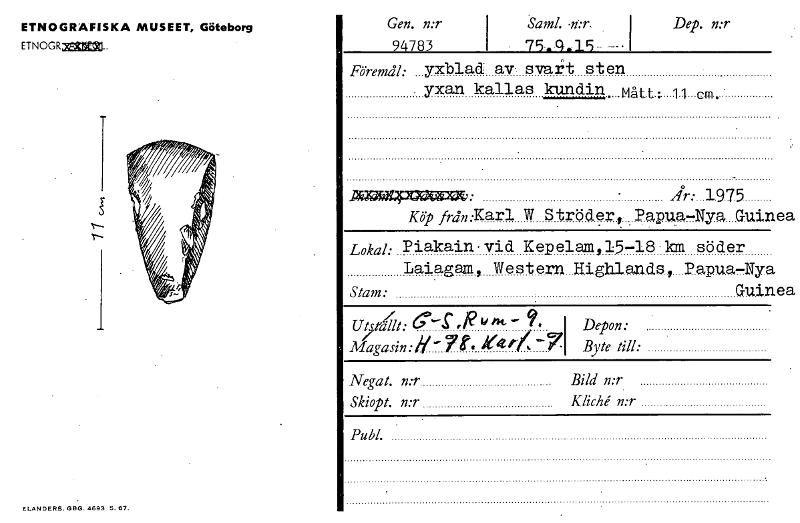 ETNOGRAFISKA MUSEET, Göteborg
ETNOGR.
11 cm
ELANDERS. GBG. 4693. S. 67.
Gen. n:r Saml. n:r Dep. n:r
94783 75.9.15
Föremål: yxblad av svart sten
yxan kallas kundin. Mått: 11 cm.
År: 1975
Köp från: Karl W Ströder, Papua-Nya Guinea
Lokal: Piakain vid Kepelam, 15-18 km söder
Laiagam, Western Highlands, Papua-Nya
Stam: Guinea
Utställt: G-S. Rum-9. Depon:
Magasin: H-78. Kart.-7. Byte till:
Negat. n:r Bild n:r
Skiopt. n:r Kliché n:r
Publ.